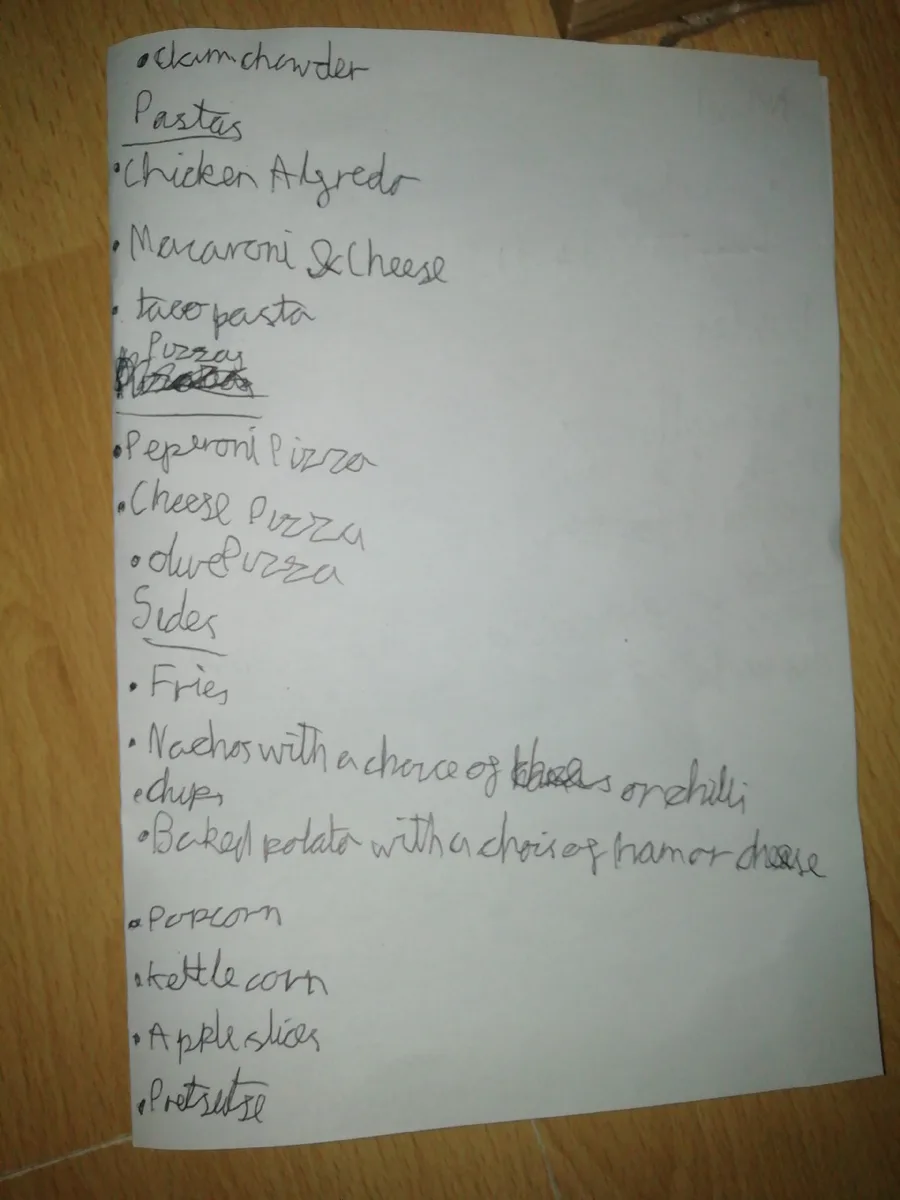 • Clam chowder
Pastas
• Chicken Algredo
• Macaroni & Cheese
• taco pasta
Pizzas
• Peperoni Pizza
• Cheese Pizza
• olive Pizza
Sides
• Fries
• Nachos with a choice of or chilli
• chips
• Baked potato with a chois of ham or cheese
• Popcorn
• kettle corn
• Apple slices